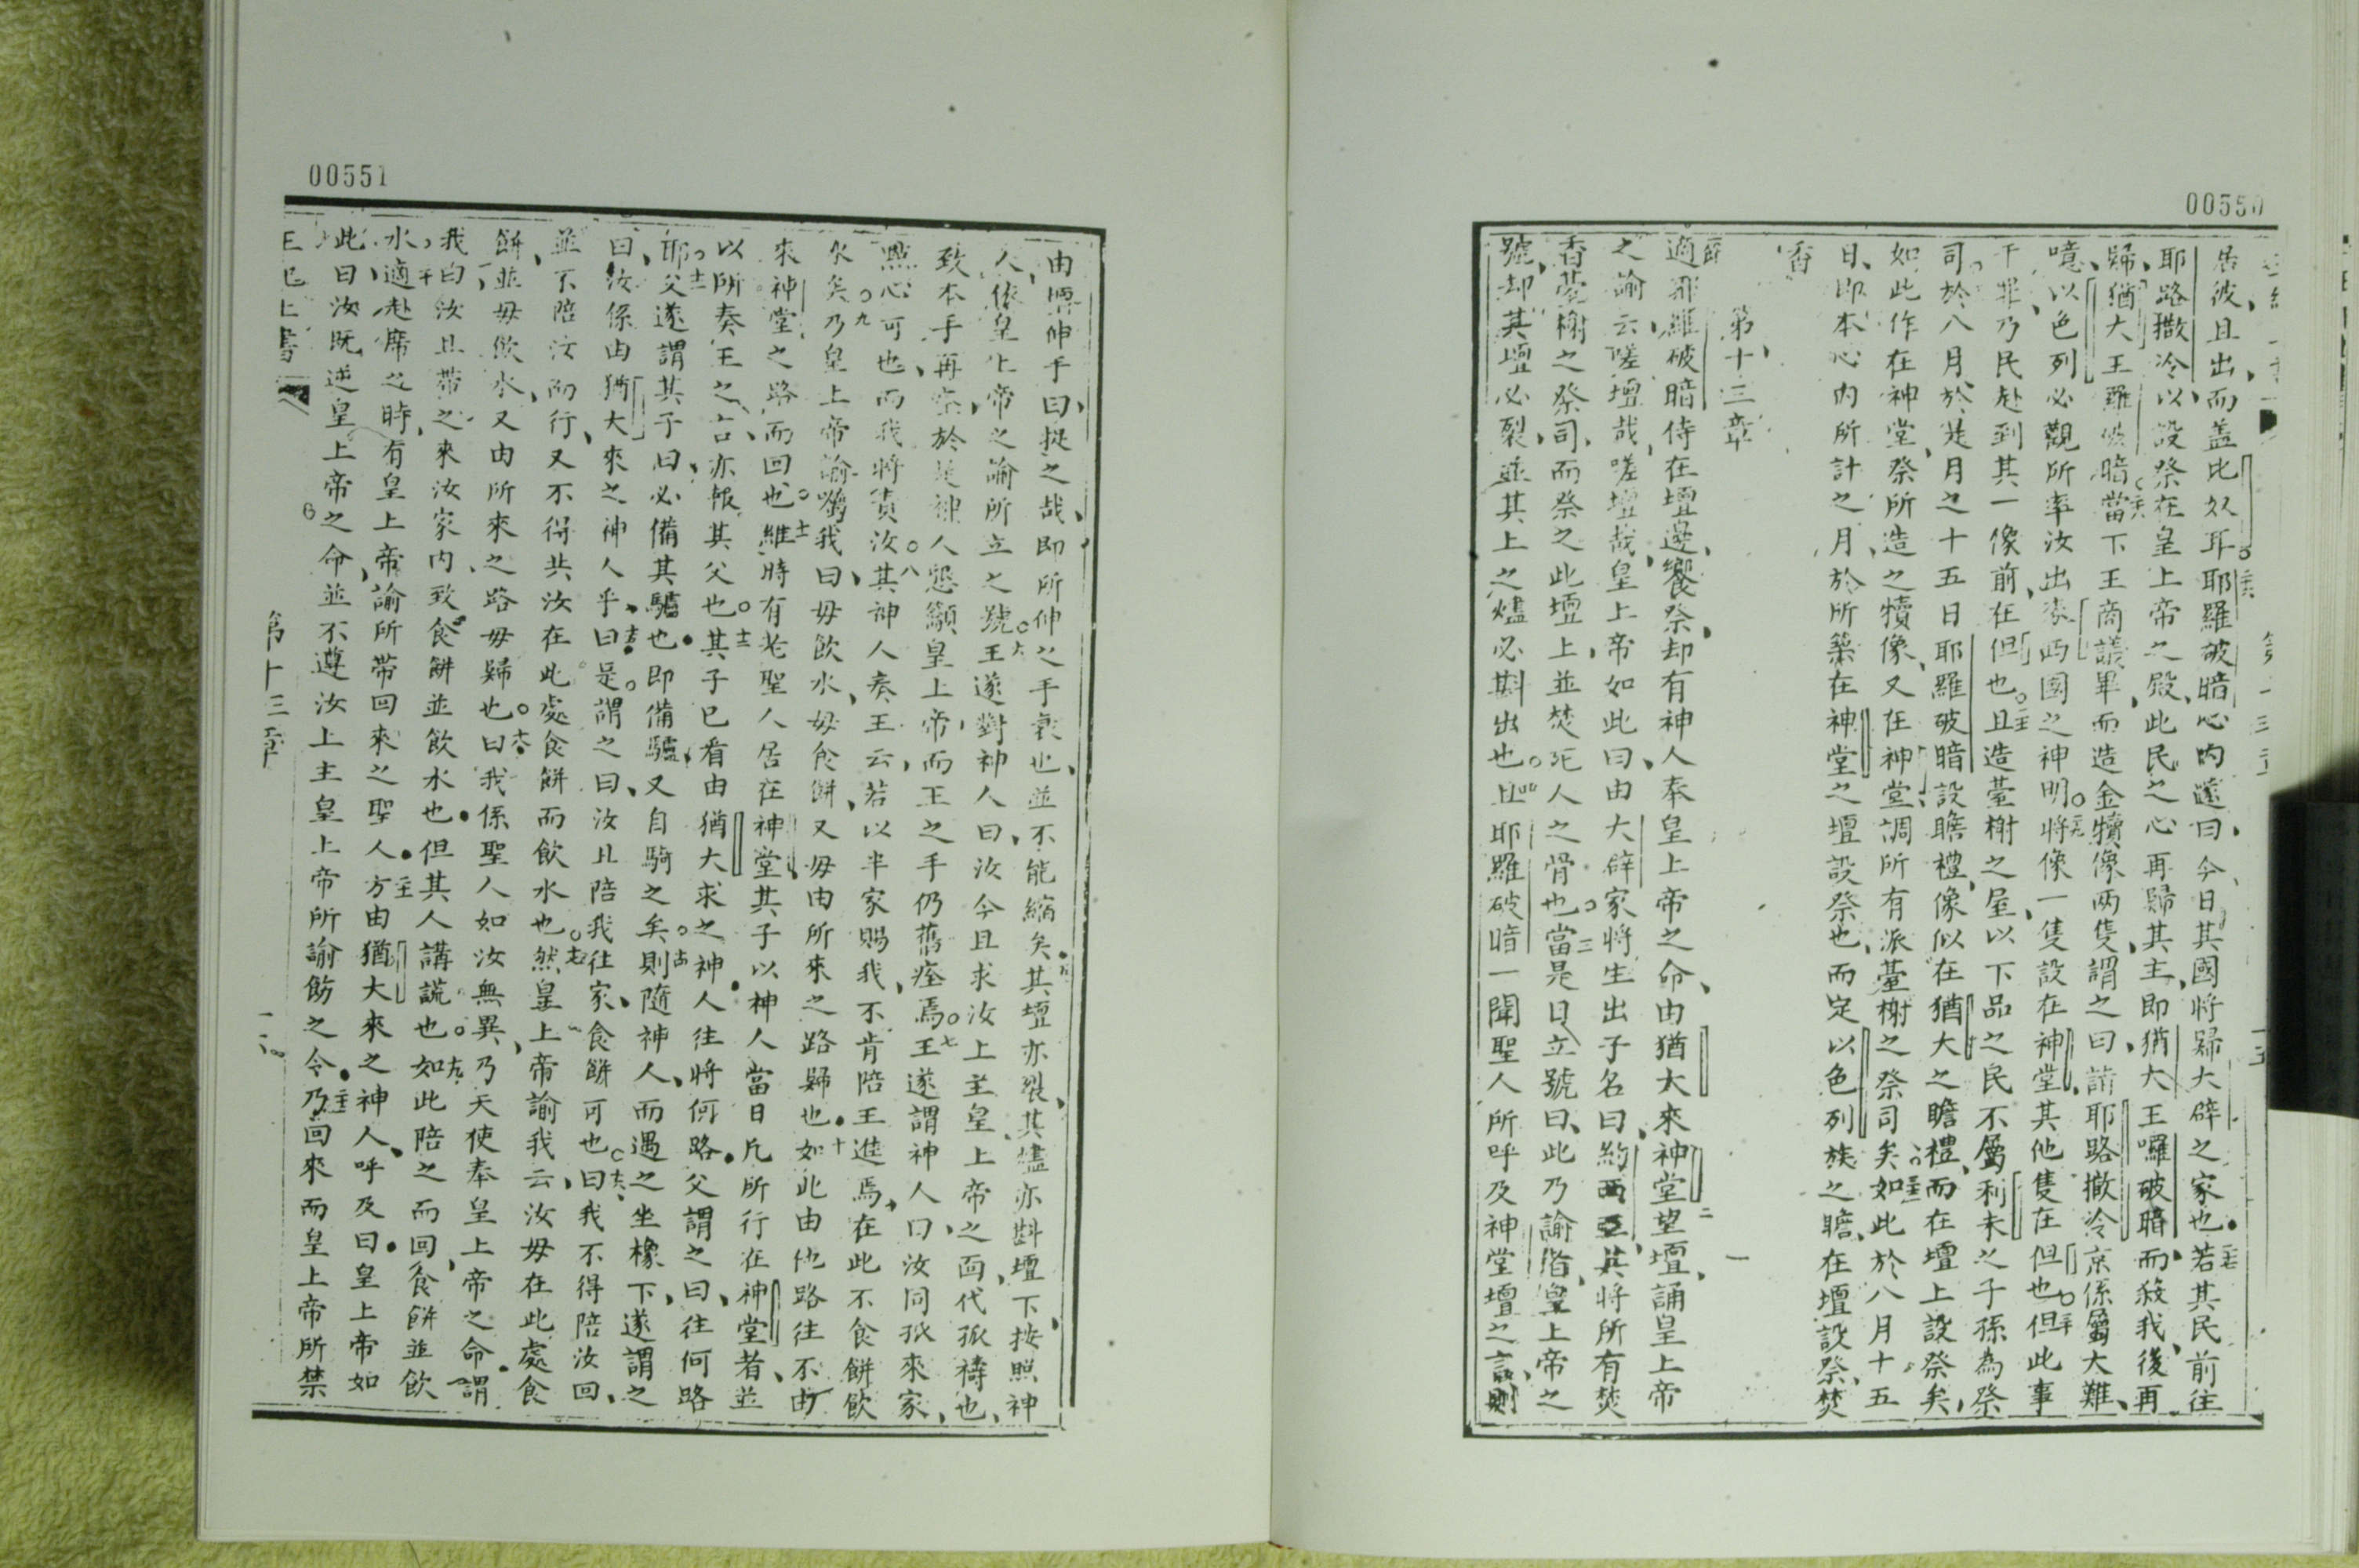 00550
居彼且出而盖比奴耳耶羅破暗心内遂曰今日其國將歸大辟之家也若其民前往
耶路撒冷以設祭在皇上帝之殿此民之心再歸其主即猶大王囉破暗而殺我後再
歸猶大王羅破暗當下王商議畢而造金犢像兩隻謂之曰詣耶路撒冷京係屬大難
噫以色列必觀所率汝出麥西國之神明將像一隻設在神堂其他隻在但也但此事
干罪乃民赴到其一像前在但也且造臺榭之屋以下品之民不屬利未之子孫為祭
司於八月於是月之十五日耶羅破暗設瞻禮像似在猶大之瞻禮而在壇上設祭矣
如此作在神堂祭所造之犢像又在神堂調所有派臺榭之祭司矣如此於八月十五
日即本心内所計之月於所築在神堂之壇設祭也而定以色列族之瞻在壇設祭焚
香
第十三章
一
節適耶羅破暗侍在壇邊饗祭却有神人奉皇上帝之命由猶大來神堂望壇誦皇上帝
之諭云嗟壇哉嗟壇哉皇上帝如此曰由大辟家將生出子名曰約西亞其將所有焚
香臺榭之祭司而祭之此壇上並焚死人之骨也當是日立號曰此乃諭偕皇上帝之
號却其壇必裂並其上之燼必斟出也且耶羅破暗一聞聖人所呼及神堂壇之言則
00551
由壇伸手曰捉之哉即所伸之手衰也並不能縮矣其壇亦裂其燼亦斟壇下按照神
人依皇上帝之諭所立之號王遂對神人曰汝今且求汝上主皇上帝之面代孤禱也
致本手再來於是神人懇籲皇上帝而王之手仍舊痊焉王遂謂神人曰汝同孤來家
點心可也而我將賚汝其神人奏王云若以半家賜我不肯陪王進焉在此不食餅飲
水矣乃皇上帝諭囑我曰毋飲水毋食餅又毋由所來之路歸也如此由他路往不由
來神堂之路而回也維時有老聖人居在神堂其子以神人當日凡所行在神堂者並
以所奏王之言亦報其父也其子已看由猶大來之神人往將何路父謂之曰往何路
耶父遂謂其子曰必備其驢也即備驢又自騎之矣則隨神人而遇之坐橡下遂謂之
曰汝係由猶大來之神人乎曰是謂之曰汝且陪我往家食餅可也曰我不得陪汝回
並不陪汝而行又不得共汝在此處食餅而飲水也然皇上帝諭我云汝毋在此處食
餅並毋飲水又由所來之路毋歸也曰我係聖人如汝無異乃天使奉皇上帝之命謂
我曰汝且帶之來汝家内致食餅並飲水也但其人講謊也如此陪之而回食餅並飲
水適赴席之時有皇上帝諭所帶回來之聖人方由猶大來之神人呼及曰皇上帝如
此曰汝既逆皇上帝之命並不遵汝上主皇上帝所諭飭之令乃回來而皇上帝所禁
王紀上書 第十三章